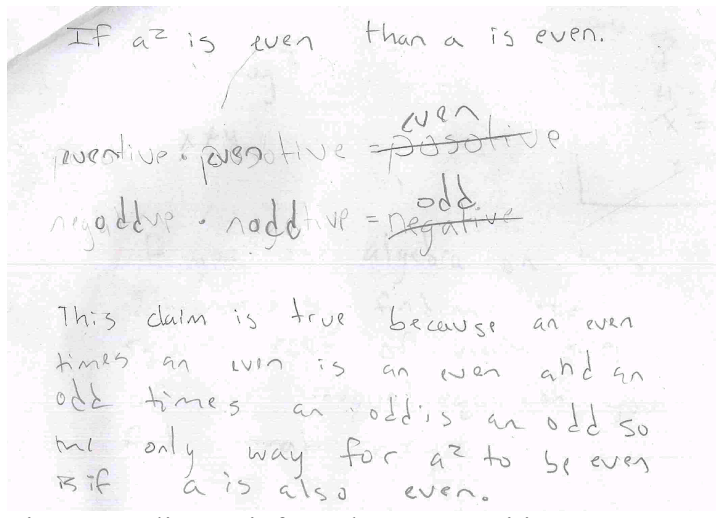 If a² is even than a is even.
even · even = even
odd · odd = odd
This claim is true because an even
times an even is an even and an
odd times an odd is an odd so
the only way for a² to be even
is if a is also even.